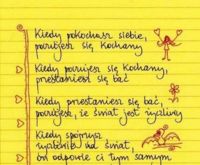 Kiedy pokochasz siebie,
poczujesz się kochany
Kiedy poczujesz się kochany,
przestaniesz się bać
Kiedy przestaniesz się bać,
poczujesz, że świat jest życzliwy
Kiedy spojrzysz
życzliwie na świat,
on odpowie ci tym samym